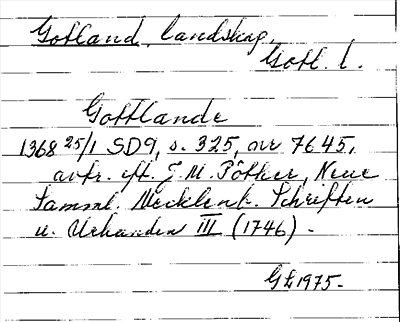 Gotland, landskap.
Gotl. l.
Gottlande
1368 25/1 SD9, s. 325, nr 7645,
avtr. eft. J. M. Pötker, Neue
Samml. Mecklenb. Schriften
u. Urkunden III (1746) -
GL1975-